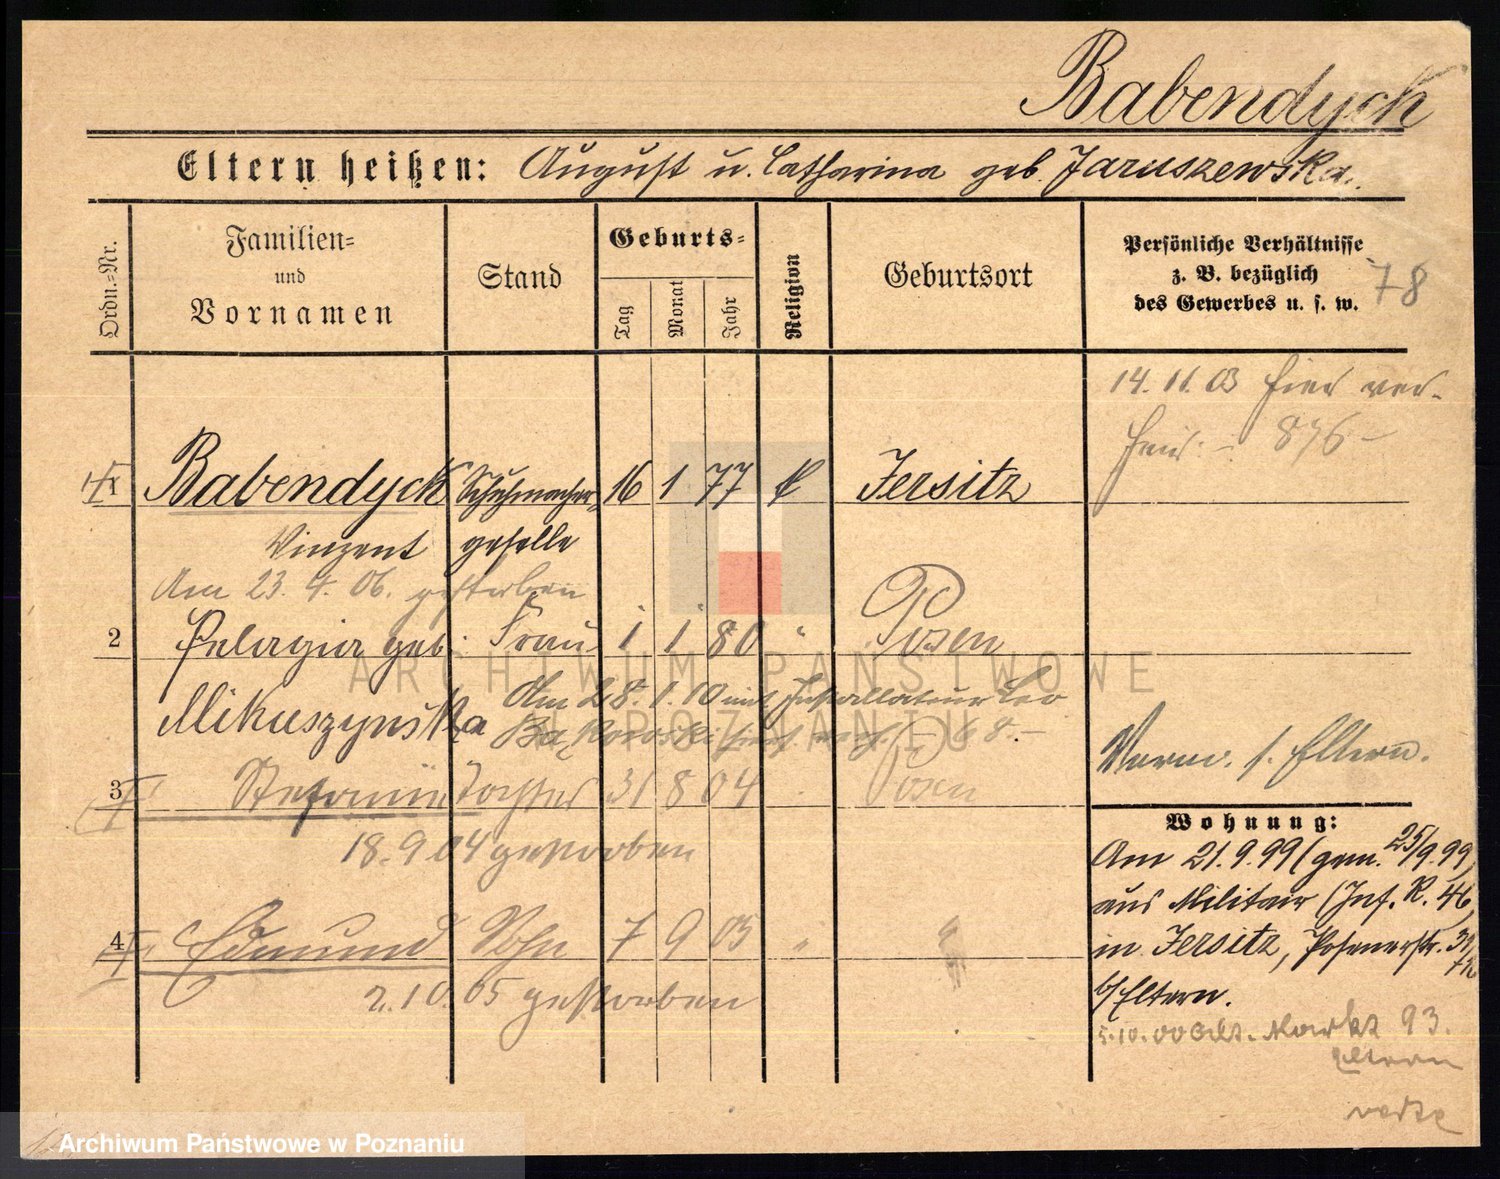 Babendyck
Eltern heißen: August u. Catharina geb. Jaruszewska.
Ordn.-Nr.
Familien- und Vornamen
Stand
Geburts-
Tag
Monat
Jahr
Religion
Geburtsort
Persönliche Verhältnisse
z. B. bezüglich
des Gewerbes u. s. w.
78
14. 11. 03 hier ver-
heir. - 876 -
1 Babendyck Schuhmacher- 16 1 77 k Jersitz
Vinzent geselle
Am 23. 4. 06. gestorben
2 Pelagia geb. Frau 1 1 80 " Posen
Mikuszynska
Am 28. 1. 10 mit Installateur Leo
68. -
Verm. s. Eltern.
3 Tochter 31 8 04 Posen
18. 9 04 gestorben
4 Edmund Sohn 7 9 05 "
2. 10. 05 gestorben
Wohnung:
Am 21. 9. 99 (gem. 25/9. 99)
aus Militair (Inf. R. 46)
in Jersitz, Posenerstr. 39
b/ Eltern.
5. 10. 00 Alt. Markt 93.
Eltern
ARCHIWUM PAŃSTWOWE
W POZNANIU
Archiwum Państwowe w Poznaniu